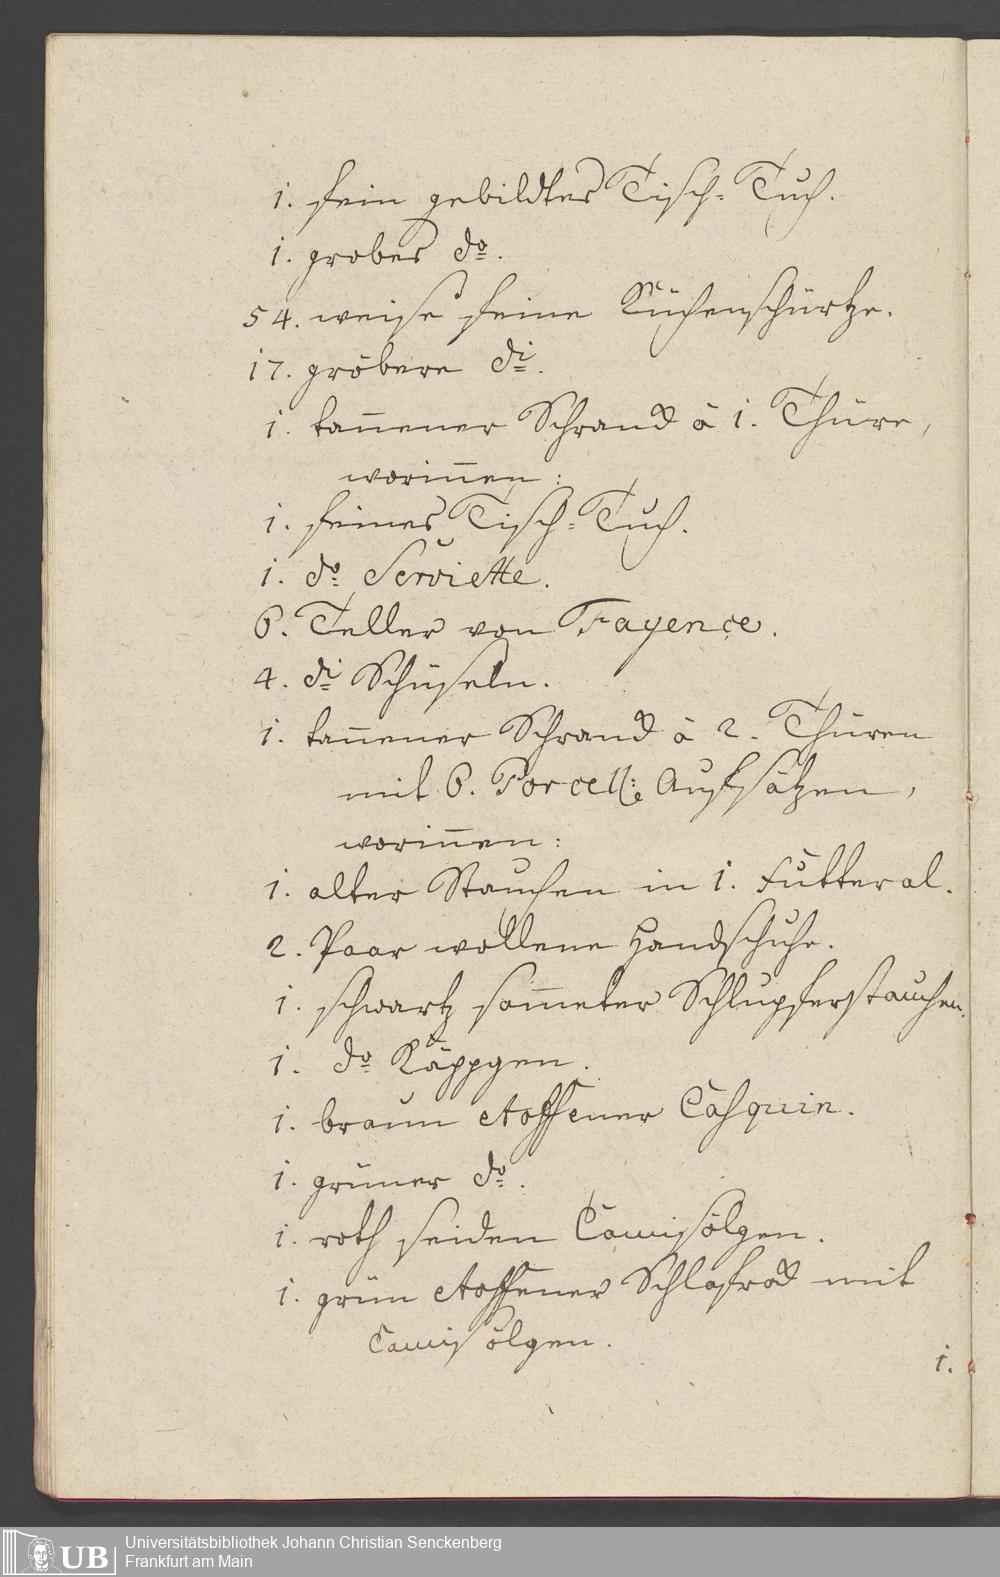 1. fein gebildtes Tisch-Tuch.
1. grobes do.
54. weise feine Küchenschürtze.
17. gröbere di.
1. tan̄ener Schranck à 1. Thüre,
worin̄en:
1. feines Tisch-Tuch.
1. do. Serviette.
6. Teller von Fayence.
4. di Schüseln.
1. tan̄ener Schranck à 2. Thüren
mit 6. Porcell: Aufsätzen,
worin̄en:
1. alter Stauchen in 1. Futteral.
2. Paar wollene Handschuhe.
1. schwartz som̄eter Schlupferstauchen.
1. do Käppgen.
1. braun stoffener Casquin.
1. grüner do.
1. roth seiden Camisölgen.
1. grün stoffener Schlafrock mit
Camisölgen.
1.
UB
Universitätsbibliothek Johann Christian Senckenberg
Frankfurt am Main